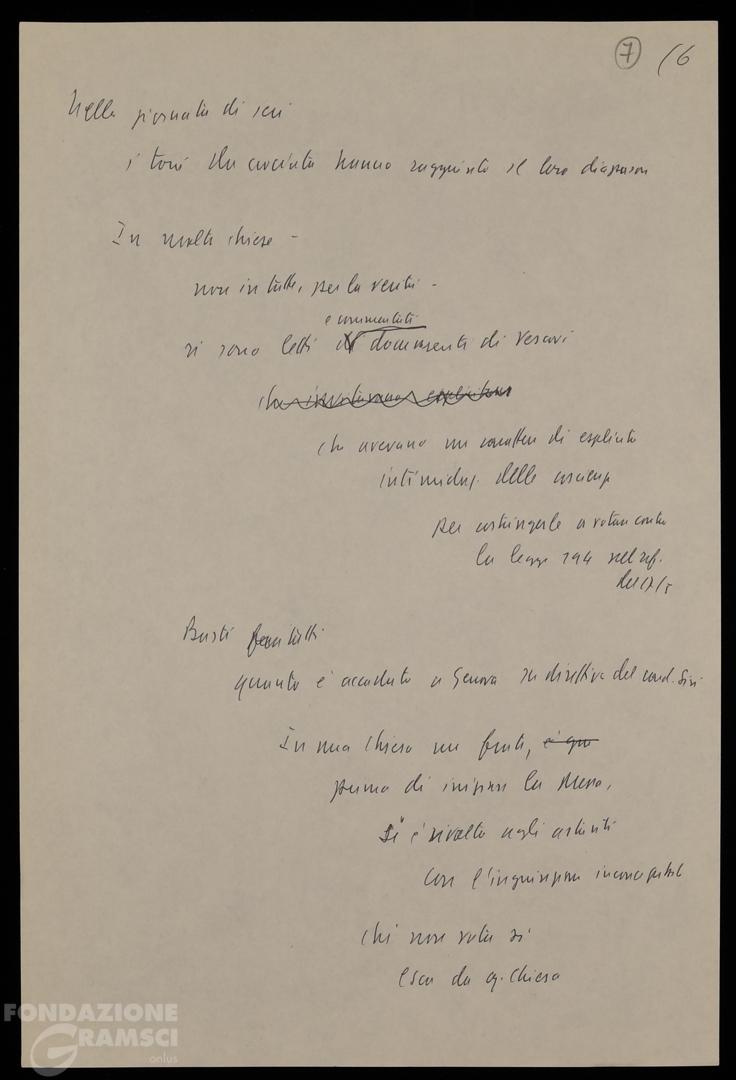 7 16
Nella giornata di ieri
i toni da crociata hanno raggiunto il loro diapason
In molte chiese -
non in tutte, per la verità -
e commentati
si sono letti documenti di Vescovi
che
che avevano un carattere di esplicita
intimidaz. delle coscienze
per costringerle a votare contro
la legge 194 nel ref.
del 17/5
Basti per tutti
quanto è accaduto a Genova su direttiva del card. Siri
In una chiesa un frate, e qui
prima di iniziare la Messa,
si è rivolto agli astanti
con l'ingiunzione inconcepibile
chi non vota sì
esca da q. Chiesa
FONDAZIONE
GRAMSCI
onlus